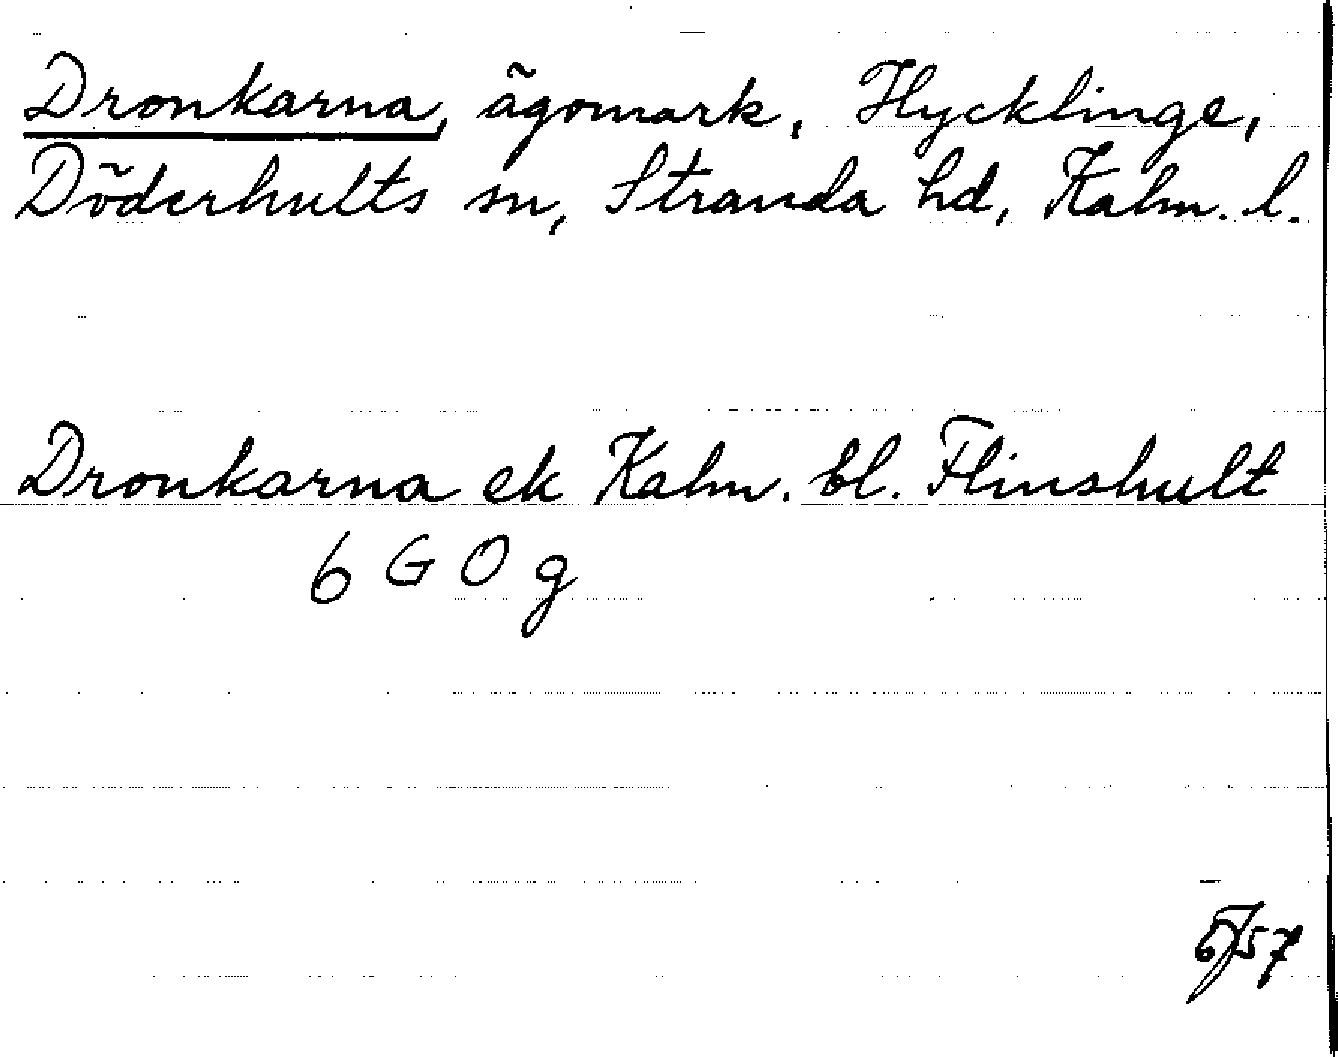 Dronkarna, ägomark, Hycklinge,
Döderhults sn, Stranda hd, Kalm. l.
Dronkarna ek Kalm. bl. Flinshult
6 G O g